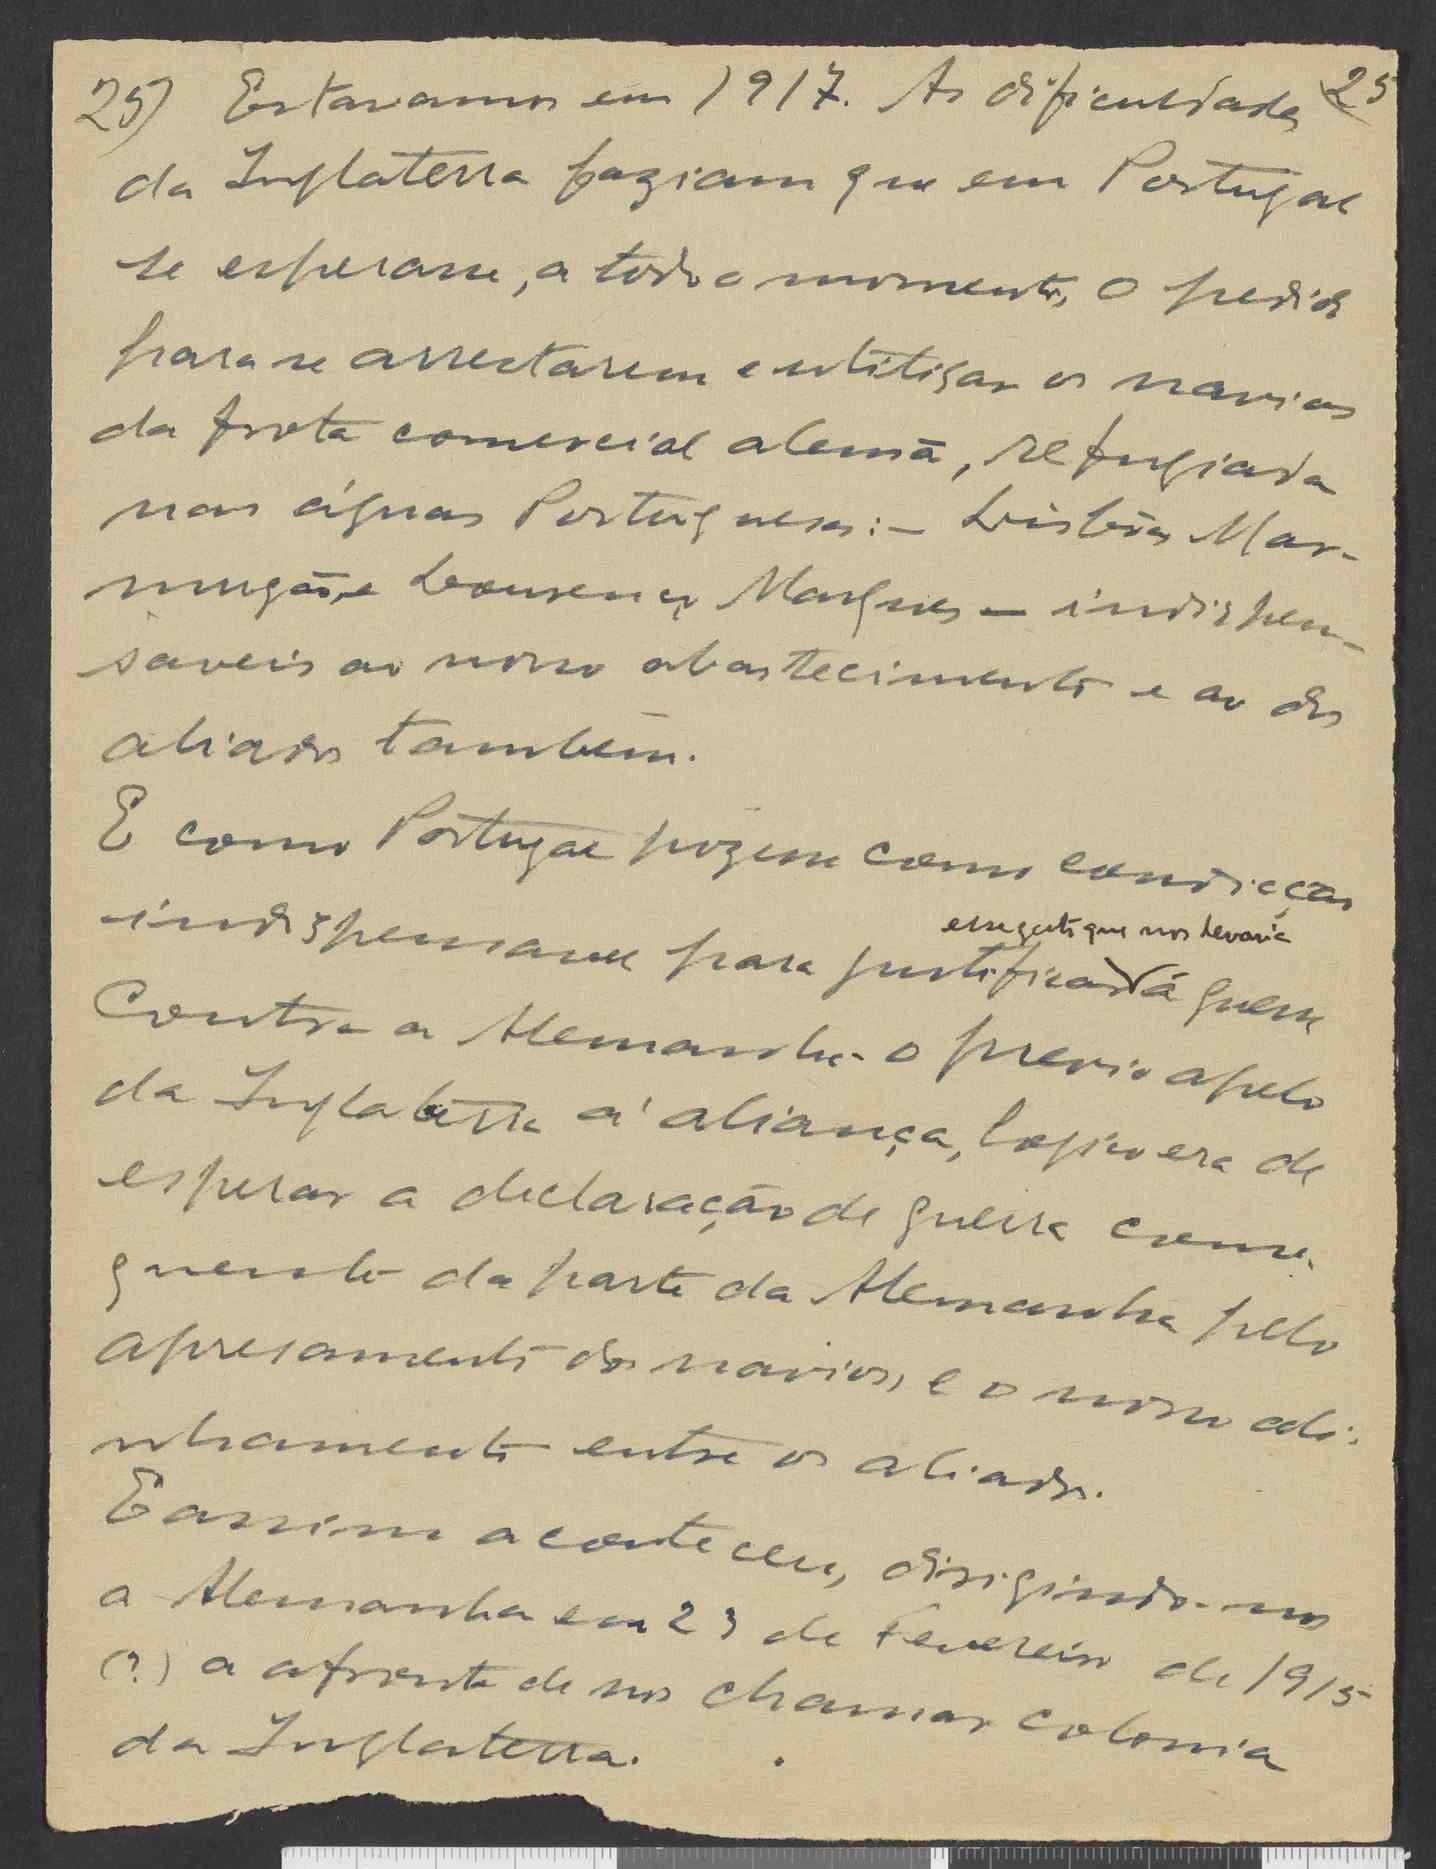 25) Estavamos em 1917. As dificuldades 25
da Inglaterra faziam que em Portugal
se esperasse, a todo o momento, o pedido
para se arrestarem e utilizar os navios
da frota comercial alemã, refugiada
nas águas Portuguesas: – Lisbôa, Mar-
mugão, e Lourenço Marques – indispen-
saveis ao nosso abastecimento e ao dos
aliados também.
E como Portugal pozesse como condicção
essa que nos levaria
indispensavel para justificar á guerra
Contra a Alemanha – o previo apelo
da Inglaterra á aliança, logico era de
esperar a declaração de guerra conse-
quente da parte da Alemanha pelo
apresamento dos navios, e o nosso ali-
nhamento entre os aliados.
E assim aconteceu, dirigindo-nos
a Alemanha em 23 de Fevereiro de 1915
(?) a afronta de nos chamar colonia
da Inglaterra.